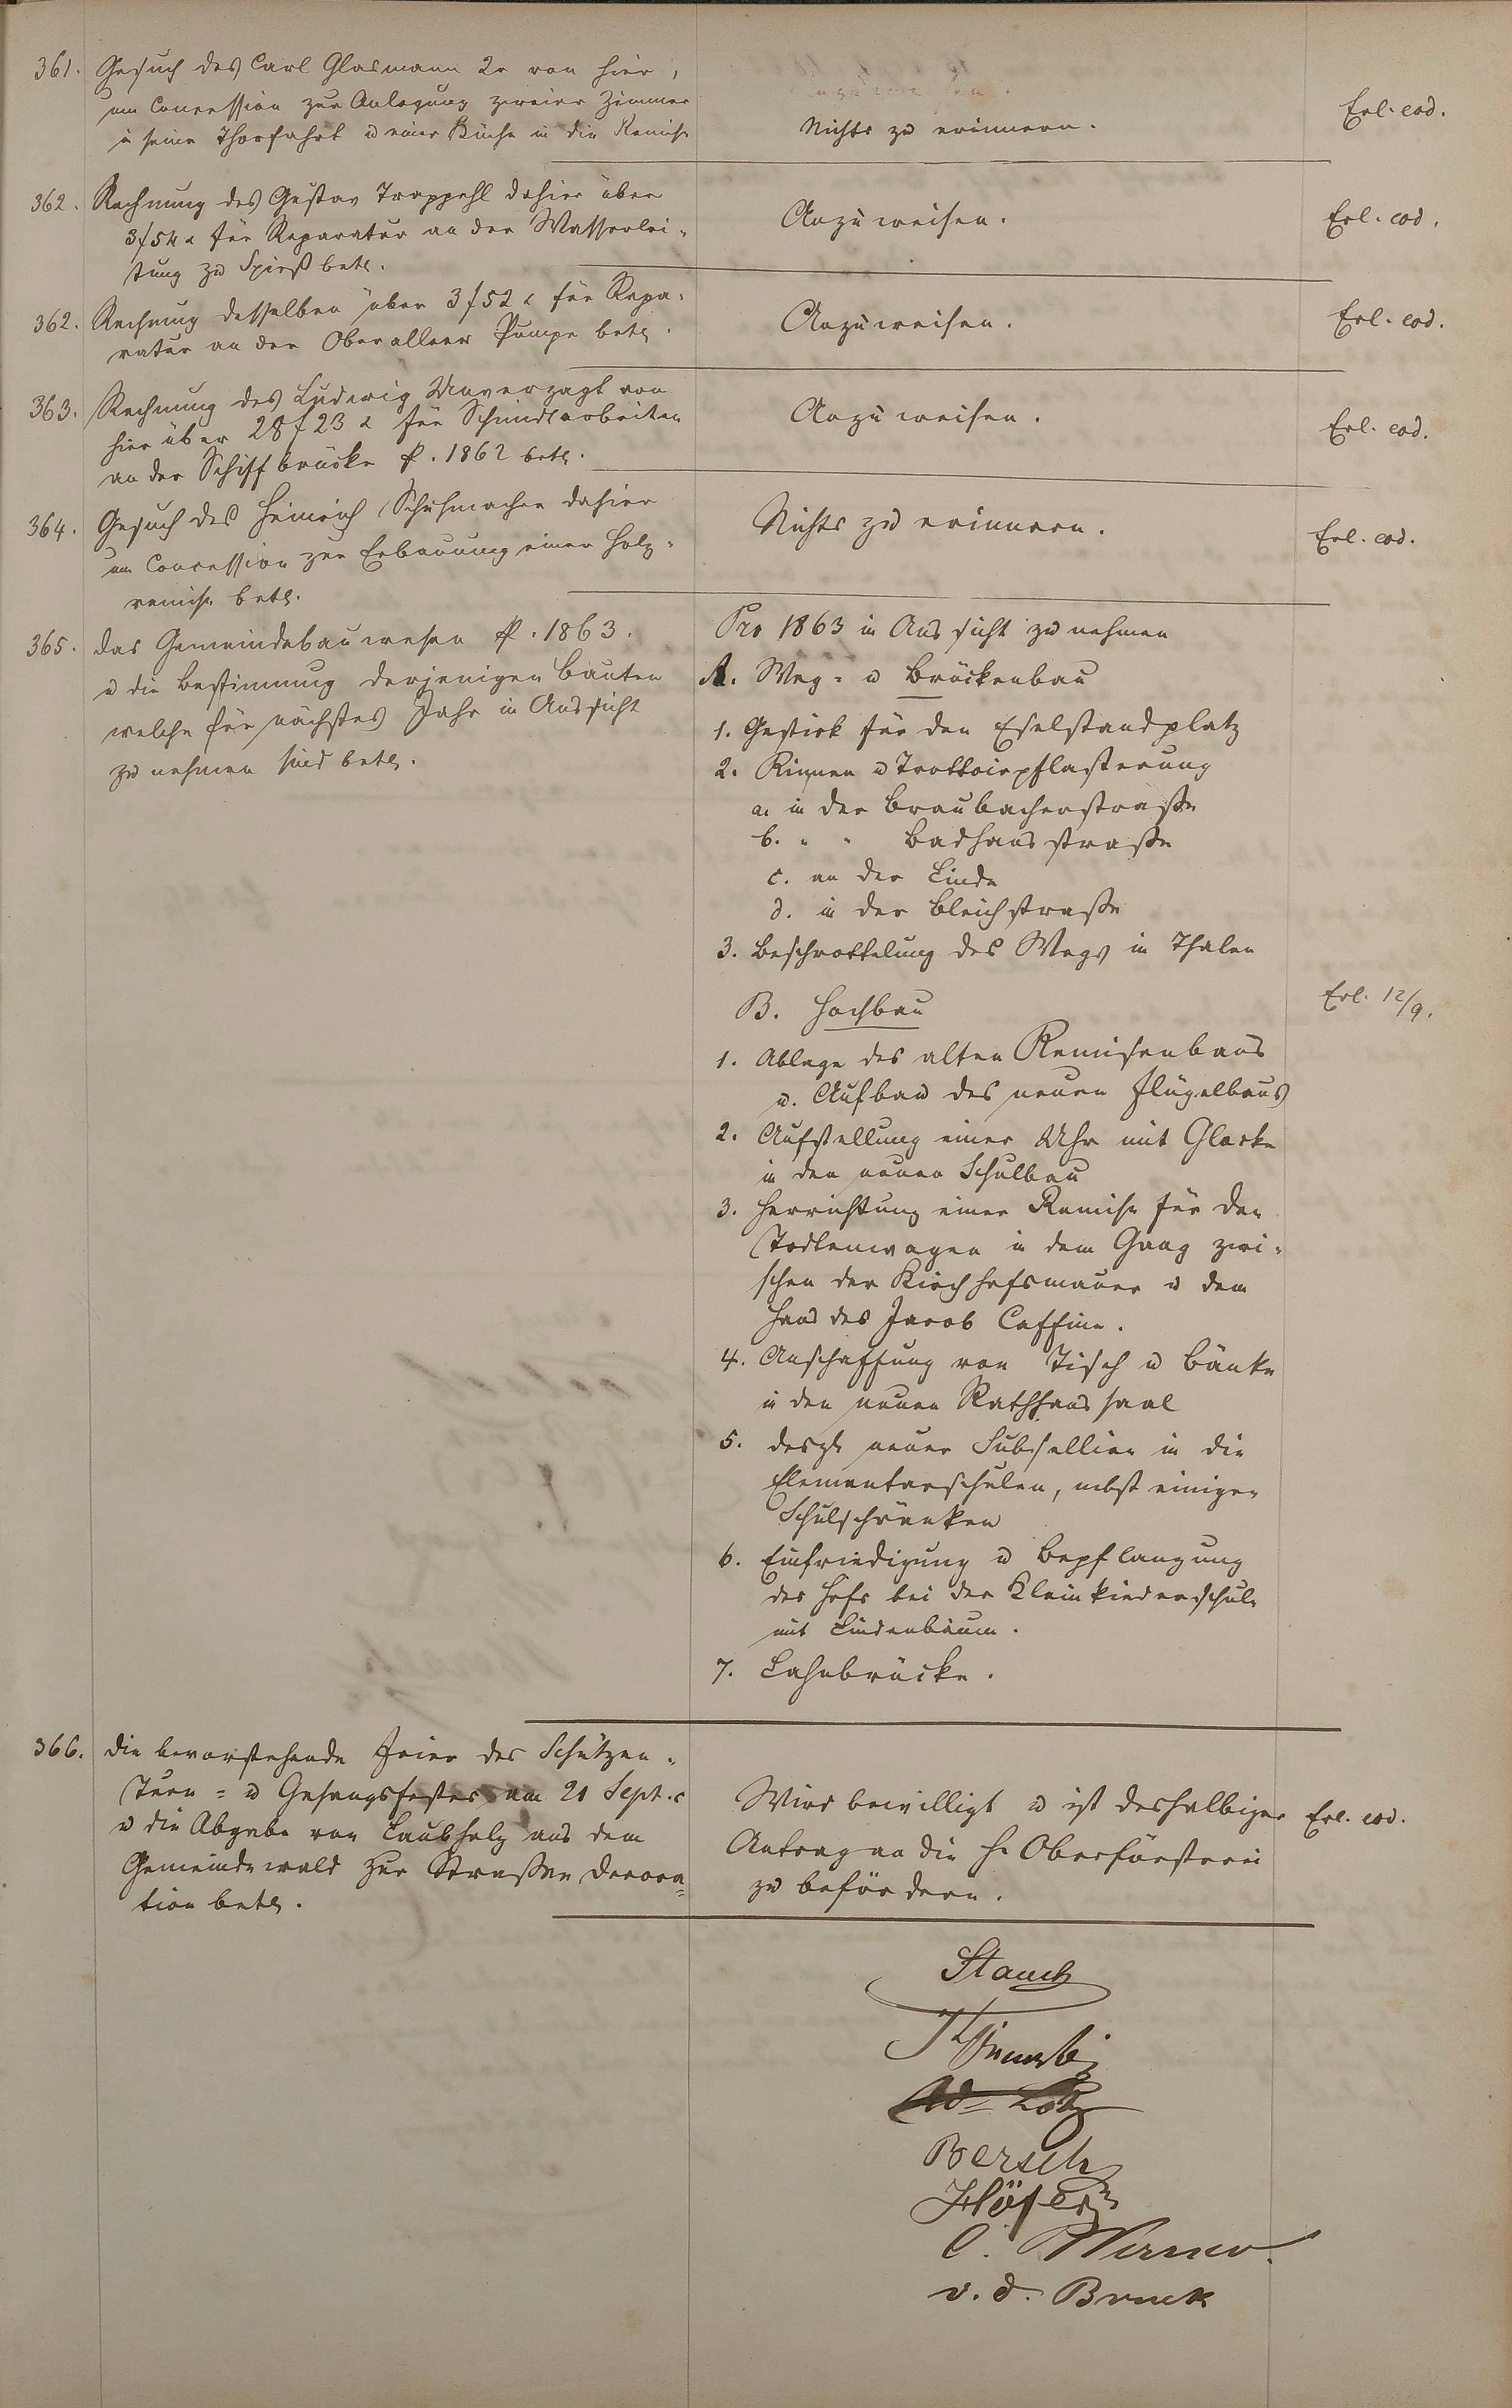 361. Gesuch des Carl Glasmann 2r von hier,
um Concession zur Anlegung zweier Zimmer
in seine Thorfahrt u einer Küche in die Remise
Nichts zu erinnern.
Erl. eod.
362. Rechnung des Gustav Trappehl dahier über
3 f 54 x für Reparatur an der Wasserlei-
tung zu Spieß betr.
Anzuweisen.
Erl. eod.
362. Rechnung desselben über 3 f 52 x für Repa-
ratur an der Oberalleer Pumpe betr.
Anzuweisen.
Erl. eod.
363. Rechnung des Ludwig Unverzagt von
hier über 28 f 23 x für Schmidtarbeiten
an der Schiffbrücke p. 1862 betr.
Anzuweisen.
Erl. eod.
364. Gesuch des Heinrich Schuhmacher dahier
um Concession zur Erbauung einer Holz-
remise betr.
Nichts zu erinnern.
Erl. eod.
365. das Gemeindebauwesen p. 1863.
u die Bestimmung derjenigen Bauten
welche für nächstes Jahr in Aussicht
zu nehmen sind betr.
Pro 1863 in Aussicht zu nehmen
A. Weg- u Brückenbau
1. Gestick für den Eselstandplatz
2. Rinnen u Trottoirpflasterung
a. in der Braubacherstraße
b. " " Badhausstraße
c. an der Linde
d. in der Bleichstraße
3. Beschrottelung des Wegs in Thalen
B. Hochbau
1. Ablage des alten Remisenbaus
u. Aufbau des neuen Flügelbaus
2. Aufstellung einer Uhr mit Glocke
in den neuen Schulbau
3. Herrichtung einer Remise für den
Todtenwagen in dem Gang zwi-
schen der Kirchhofsmauer u dem
Haus des Jacob Caffine.
4. Anschaffung von Tisch u Bänke
in den neuen Rathhaussaal
5. desgl. neuer Subsellien in die
Elementarschulen, nebst einigen
Schulschränken
6. Einfriedigung u Bepflanzung
des Hofs bei der Kleinkinderschule
mit Lindenbäum.
7. Lahnbrücke.
Erl. 12/9.
366. die bevorstehende Feier des Schützen-
Turn- u Gesangsfestes am 21 Sept. c
u die Abgabe von Laubholz aus dem
Gemeindewald zur Straßen Decora-
tion betr.
Wird bewilligt u ist deshalbiger
Antrag an die H. Oberförsterei
zu befördern.
Erl. eod.
Stauch
Ad. Lotz
Bersch
Höfer
C. Werner.
v. d. Bruck